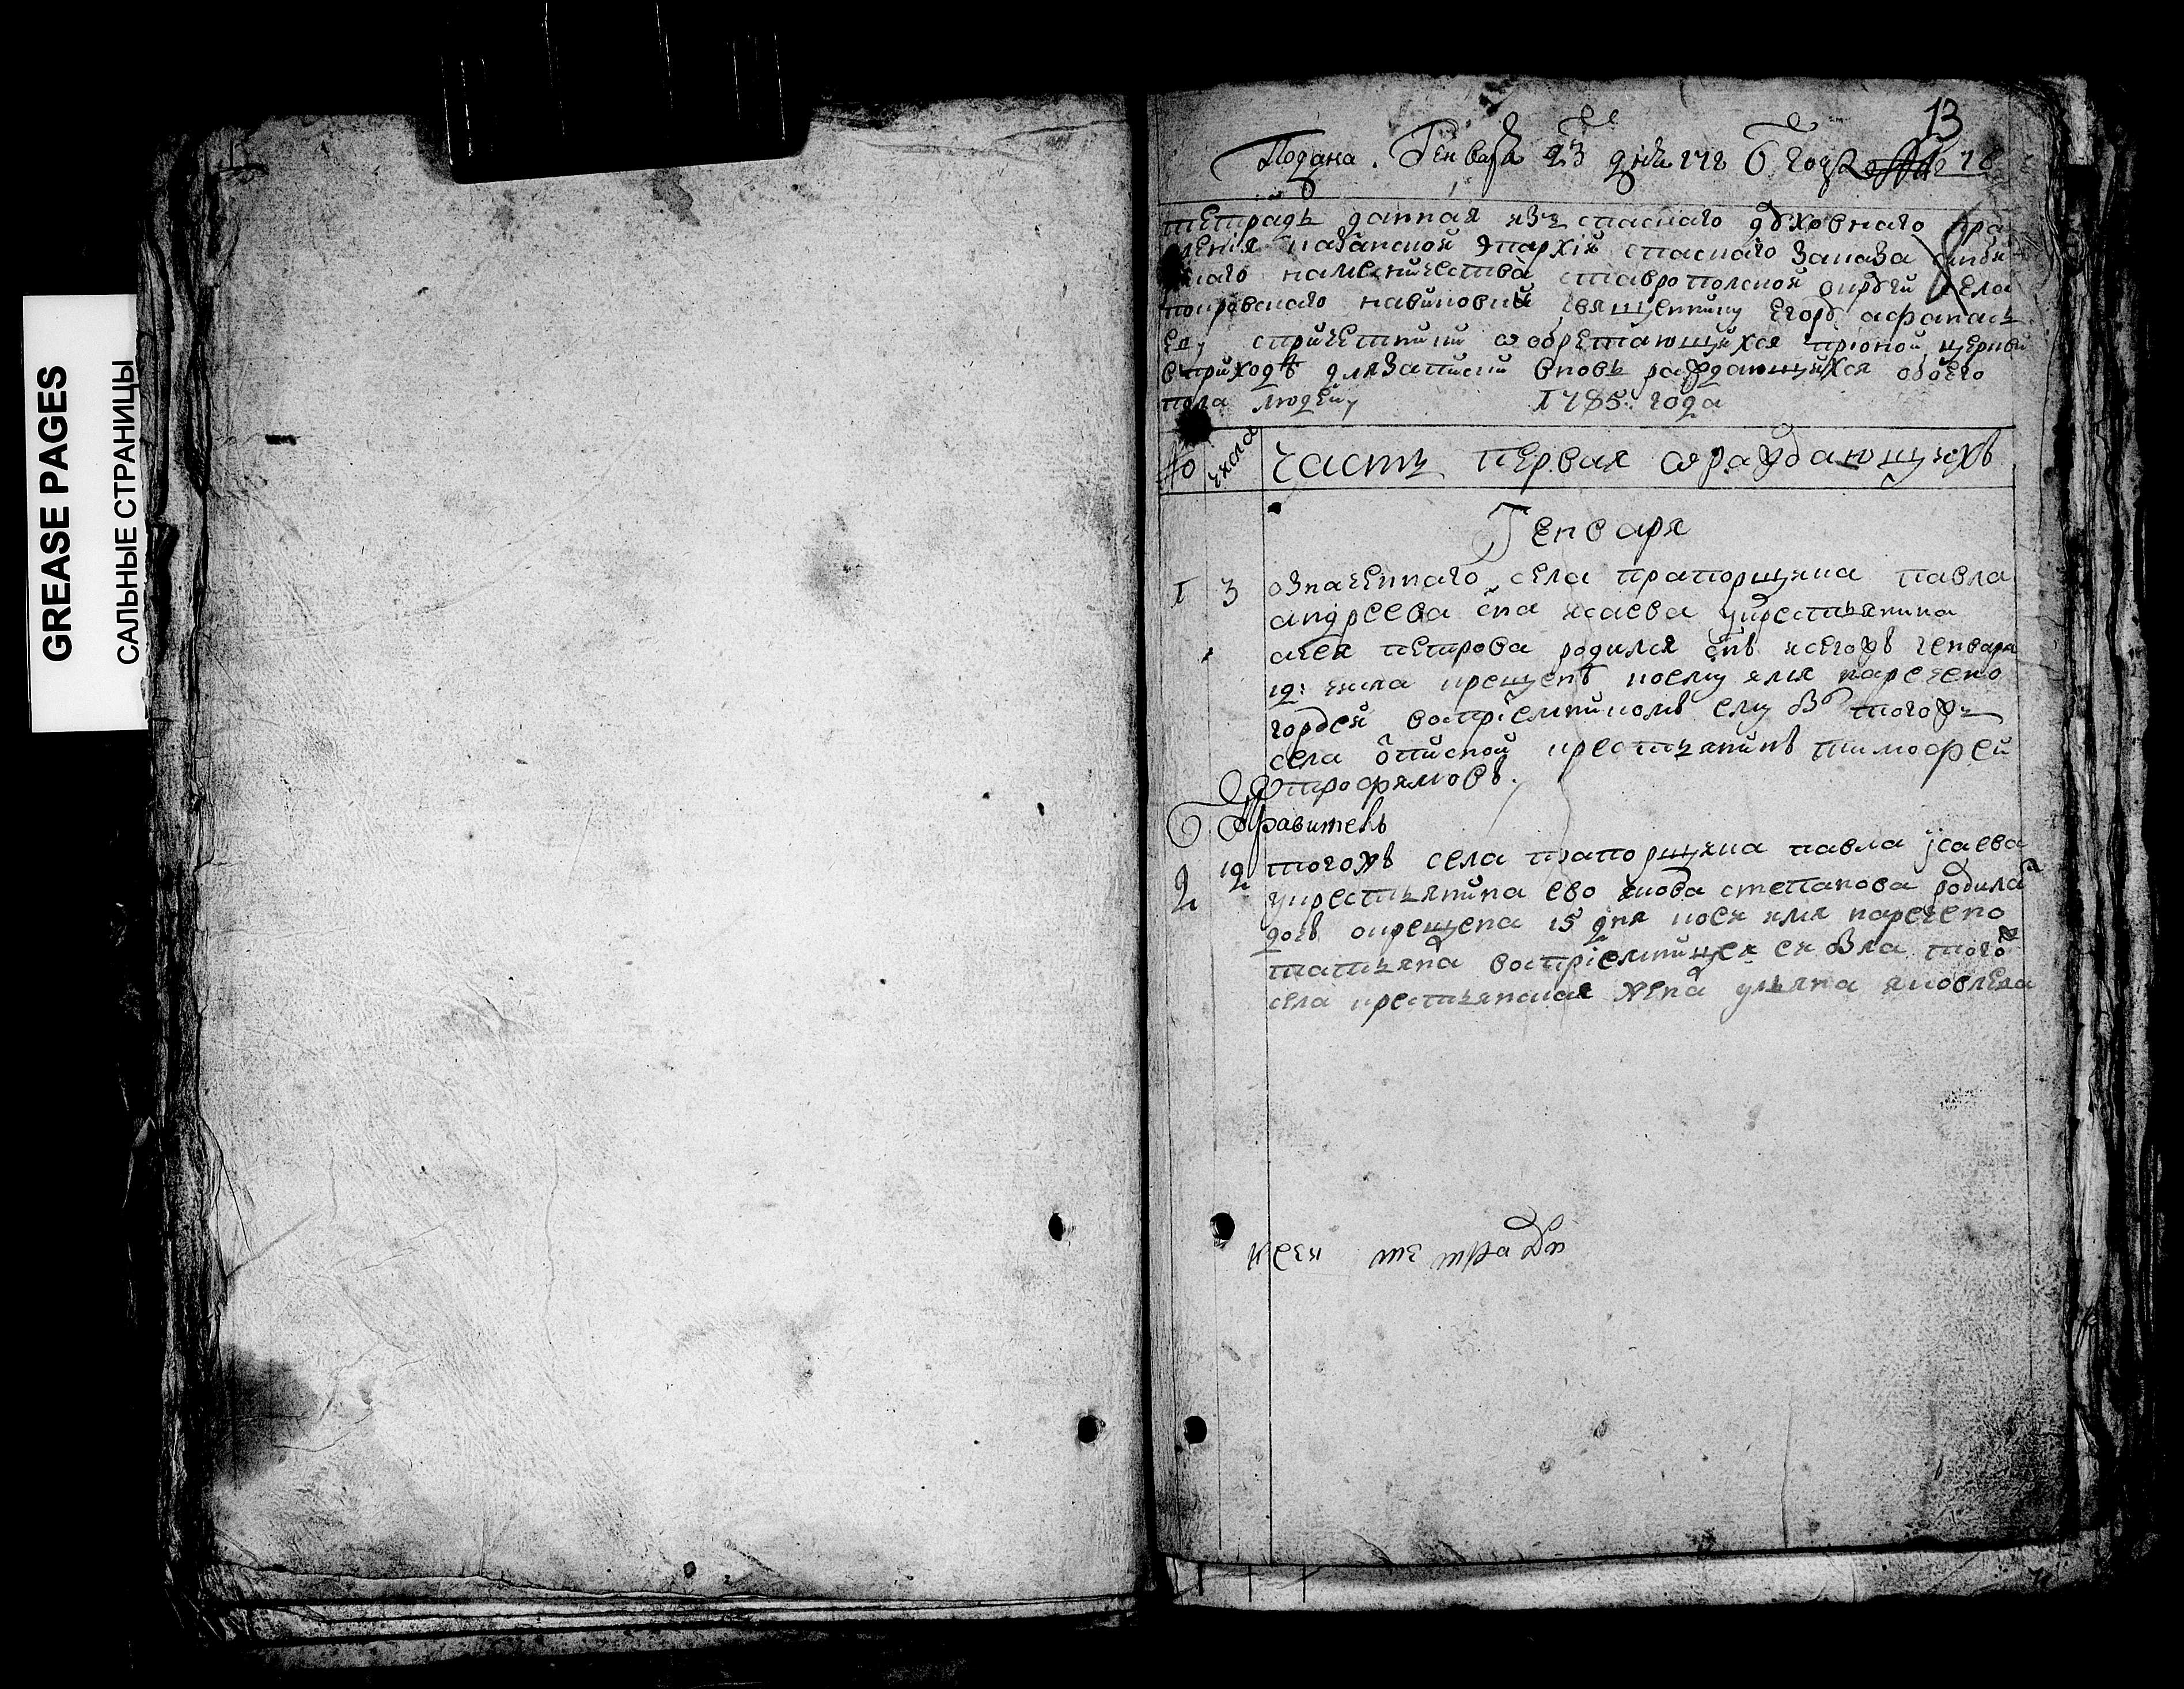 GREASE PAGES
САЛЬНЫЕ СТРАНИЦЫ
13
Подана. Генваря 23 дня 178 6 года
тетрадь данная изъ спаского духовнаго пра
ления казанской эпархїи спаскаго заказа
наместничества ставрополской округи села
покровскаго священнику егору афанась
еву спричетники ѡобретающихся прионой церкви
вприходѣ длязаписки вновь раждающихся обоего
пола людей 1785: года
№ числа Часть первая ѡраждающихъ
Генваря
1 3 означеннаго села прапорщика павла
андреева сна исаева укрестьянина
петрова родился снъ исегожъ генваря
12: числа крещенъ коему имя наречено
гордей воспрїемникомъ ему былъ тогожъ
села крестьянинъ тимофей
трофимовъ.
Правитель
2 12 тогожъ села прапорщика павла исаева
укрестьянина ево якова степанова родилас
дочь окрещена 15 дня коей имя наречено
татьяна воспрїемницей ей была того
села крестьянская жена ульяна яковлева
тетради